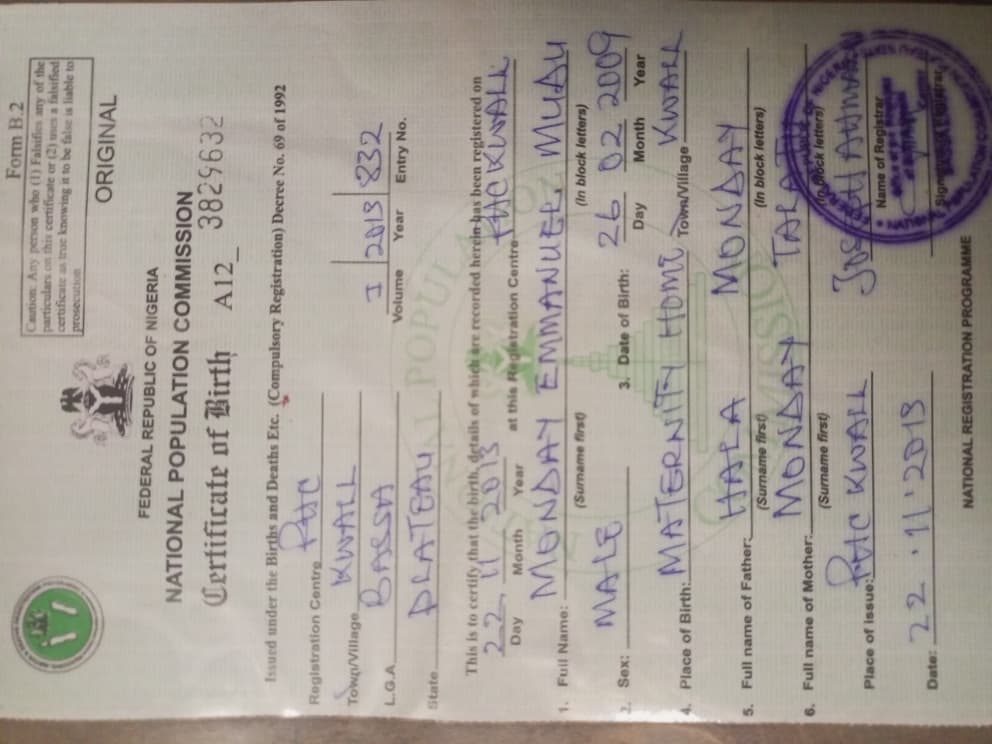 Form B.2
Caution: Any person who (1) Falsifies any of the
particulars on this certificate or (2) uses a falsified
certificate as true knowing it to be false is liable to
prosecution
ORIGINAL
FEDERAL REPUBLIC OF NIGERIA
NATIONAL POPULATION COMMISSION
Certificate of Birth A12 3829632
Issued under the Births and Deaths Etc. (Compulsory Registration) Decree No. 69 of 1992
Registration Centre PHC
Town/Village KWALL
L.G.A BASSA I 2013 832
Volume Year Entry No.
State PLATEAU
This is to certify that the birth, details of which are recorded herein has been registered on
22 11 2013 at this Registration Centre PHC KWALL
Day Month Year
1. Full Name: MONDAY EMMANUEL MUAU
(Surname first) (In block letters)
2. Sex: MALE 3. Date of Birth: 26 02 2009
Day Month Year
4. Place of Birth: MATERNITY HOME Town/Village KWALL
5. Full name of Father: HARA MONDAY
(Surname first) (In block letters)
6. Full name of Mother: MONDAY TALATU
(Surname first) (In block letters)
Place of issue: PHC KWALL
Name of Registrar
Date: 22.11.2013
NATIONAL REGISTRATION PROGRAMME